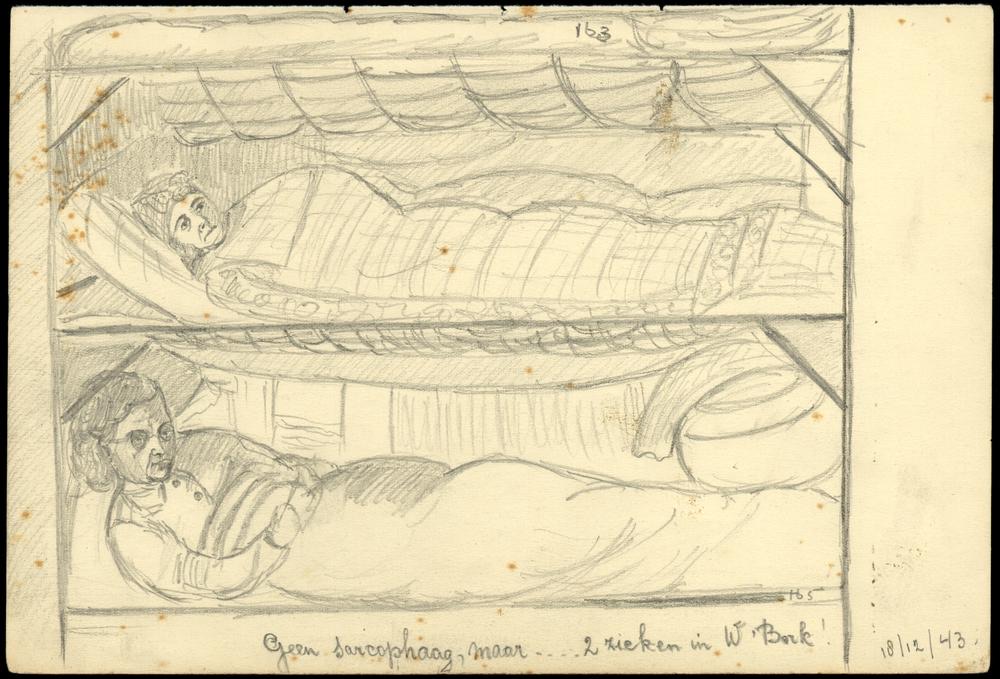 163
165
Geen sarcophaag, maar ..... 2 zieken in W'Bork!
18/12/43